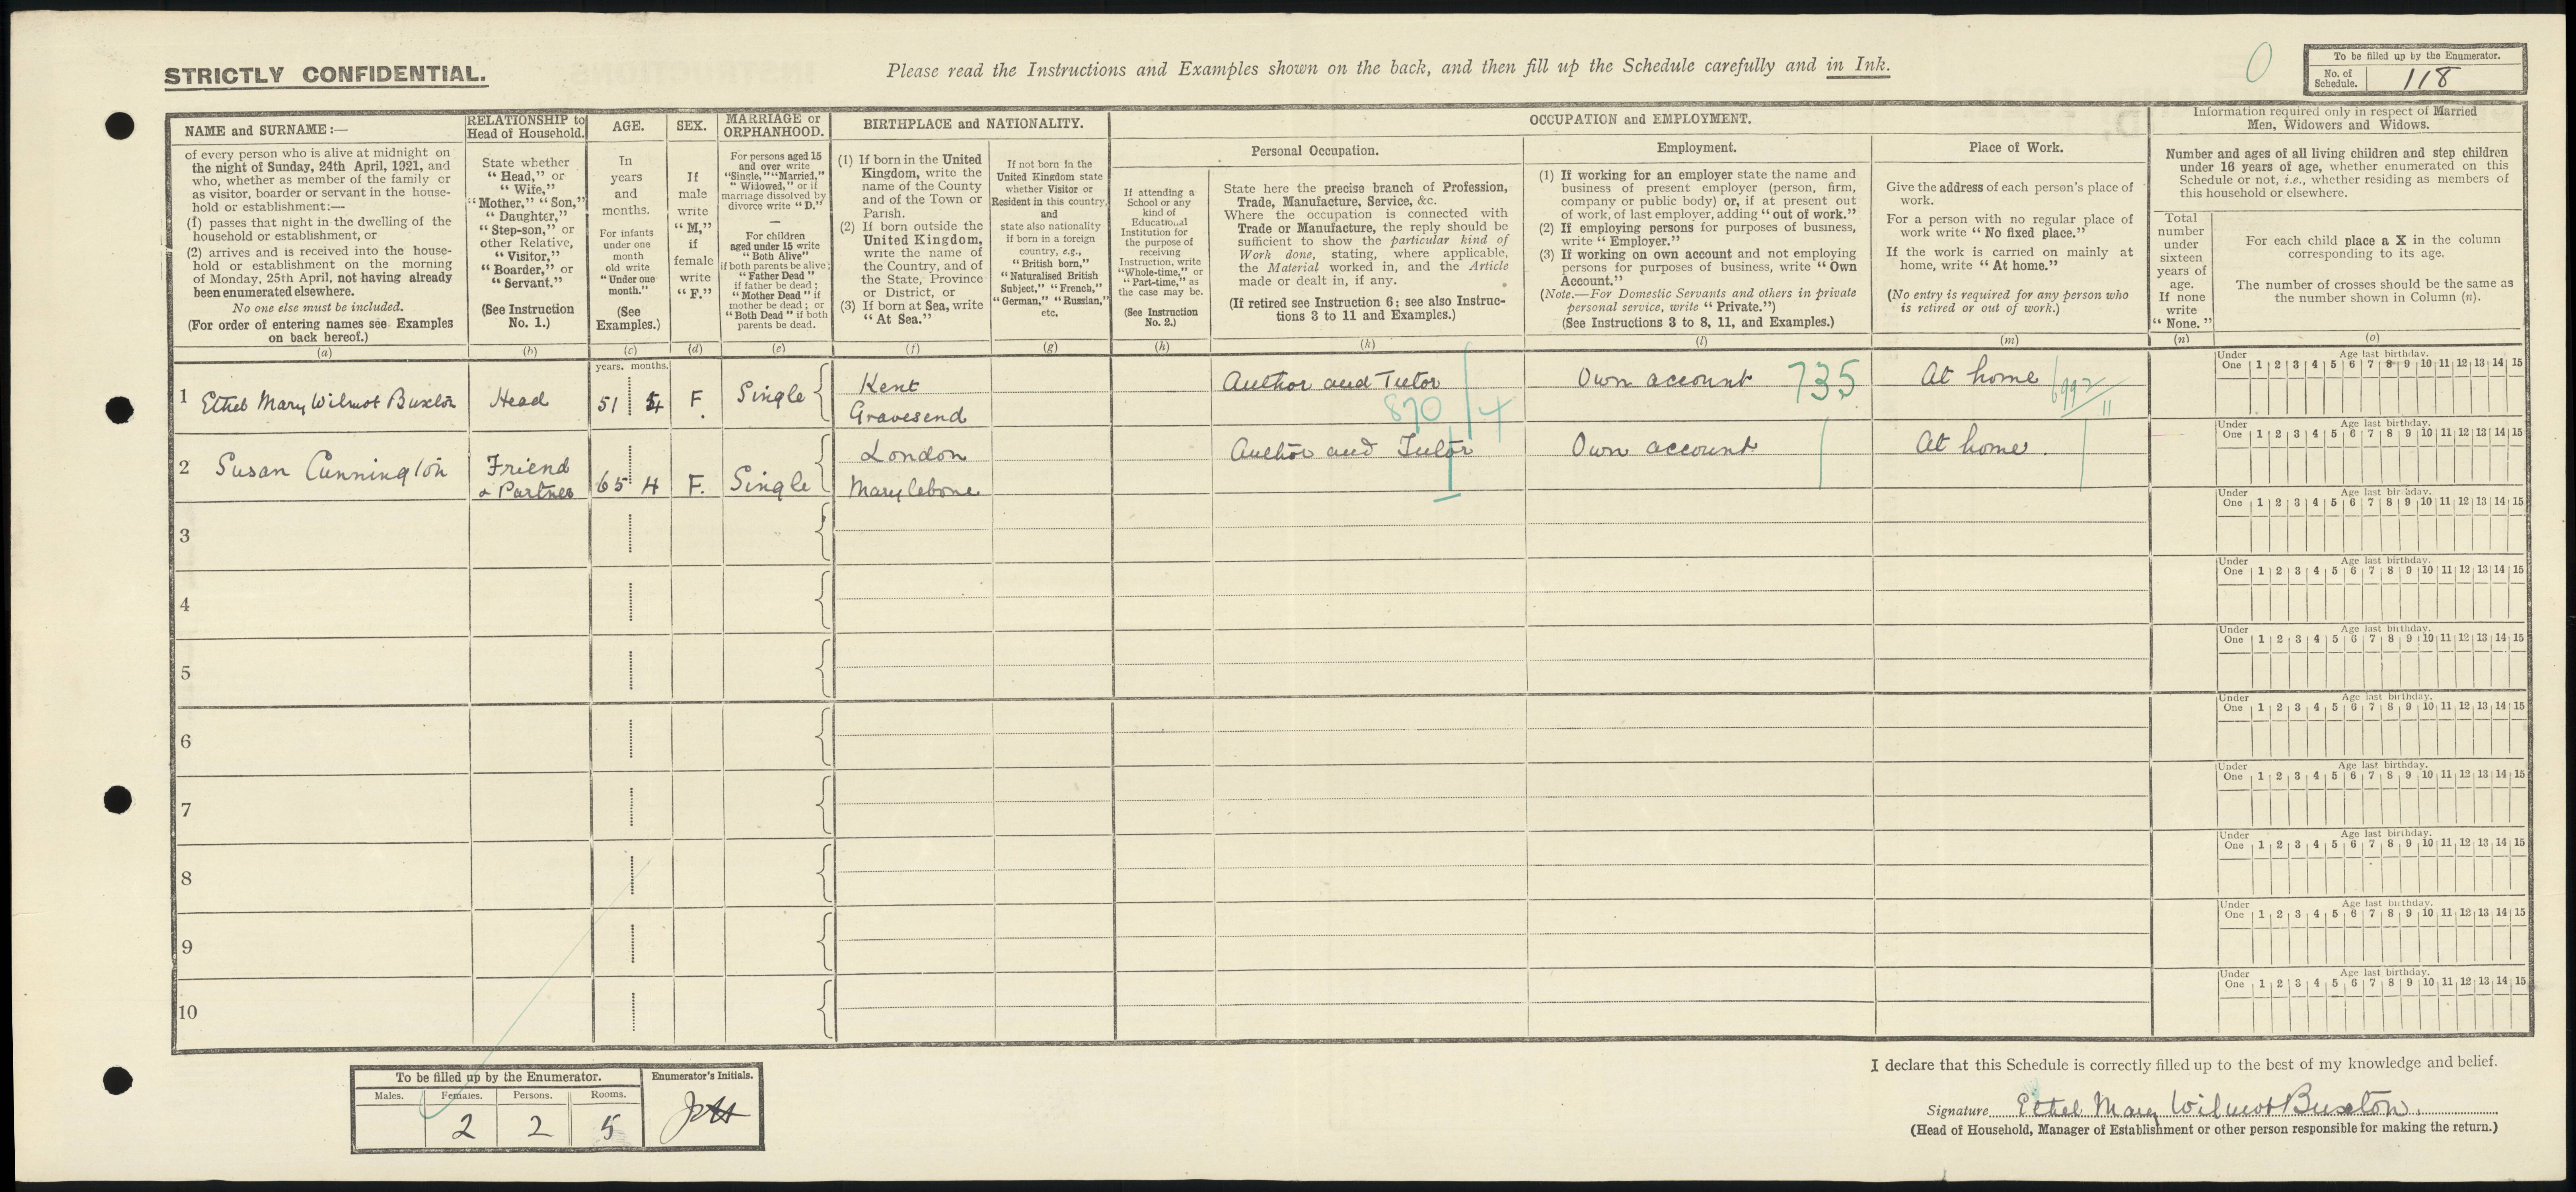 STRICTLY CONFIDENTIAL.
Please read the Instructions and Examples shown on the back, and then fill up the Schedule carefully and in Ink.
0
To be filled up by the Enumerator.
No. of Schedule. 118
NAME and SURNAME:—
of every person who is alive at midnight on
the night of Sunday, 24th April, 1921, and
who, whether as member of the family or
as visitor, boarder or servant in the house-
hold or establishment:—
(1) passes that night in the dwelling of the
household or establishment, or
(2) arrives and is received into the house-
hold or establishment on the morning
of Monday, 25th April, not having already
been enumerated elsewhere.
No one else must be included.
(For order of entering names see Examples
on back hereof.)
(a)
RELATIONSHIP to
Head of Household.
State whether
"Head," or
"Wife,"
"Mother," "Son,"
"Daughter,"
"Step-son," or
other Relative,
"Visitor,"
"Boarder," or
"Servant."
(See Instruction
No. 1.)
(b)
AGE.
In
years
and
months.
For infants
under one
month
old write
"Under one
month."
(See
Examples.)
(c)
SEX.
If
male
write
"M,"
if
female
write
"F."
(d)
MARRIAGE or
ORPHANHOOD.
For persons aged 15
and over write
"Single," "Married,"
"Widowed," or if
marriage dissolved by
divorce write "D."
—
For children
aged under 15 write
"Both Alive"
if both parents be alive;
"Father Dead"
if father be dead;
"Mother Dead" if
mother be dead; or
"Both Dead" if both
parents be dead.
(e)
BIRTHPLACE and NATIONALITY.
(1) If born in the United
Kingdom, write the
name of the County
and of the Town or
Parish.
(2) If born outside the
United Kingdom,
write the name of
the Country, and of
the State, Province
or District, or
(3) If born at Sea, write
"At Sea."
(f)
If not born in the
United Kingdom state
whether Visitor or
Resident in this country,
and
state also nationality
if born in a foreign
country, e.g.,
"British born,"
"Naturalised British
Subject," "French,"
"German," "Russian,"
etc.
(g)
OCCUPATION and EMPLOYMENT.
If attending a
School or any
kind of
Educational
Institution for
the purpose of
receiving
Instruction, write
"Whole-time," or
"Part-time," as
the case may be.
(See Instruction
No. 2.)
(h)
Personal Occupation.
State here the precise branch of Profession,
Trade, Manufacture, Service, &c.
Where the occupation is connected with
Trade or Manufacture, the reply should be
sufficient to show the particular kind of
Work done, stating, where applicable,
the Material worked in, and the Article
made or dealt in, if any.
(If retired see Instruction 6; see also Instruc-
tions 3 to 11 and Examples.)
(k)
Employment.
(1) If working for an employer state the name and
business of present employer (person, firm,
company or public body) or, if at present out
of work, of last employer, adding "out of work."
(2) If employing persons for purposes of business,
write "Employer."
(3) If working on own account and not employing
persons for purposes of business, write "Own
Account."
(Note.—For Domestic Servants and others in private
personal service, write "Private.")
(See Instructions 3 to 8, 11, and Examples.)
(l)
Place of Work.
Give the address of each person's place of
work.
For a person with no regular place of
work write "No fixed place."
If the work is carried on mainly at
home, write "At home."
(No entry is required for any person who
is retired or out of work.)
(m)
Information required only in respect of Married
Men, Widowers and Widows.
Number and ages of all living children and step children
under 16 years of age, whether enumerated on this
Schedule or not, i.e., whether residing as members of
this household or elsewhere.
Total
number
under
sixteen
years of
age.
If none
write
"None."
(n)
For each child place a X in the column
corresponding to its age.
The number of crosses should be the same as
the number shown in Column (n).
(o)
years. months.
1 Ethel Mary Wilmot Buxton Head 51 F. Single Kent Gravesend Author and Tutor 870/4 Own account 735 At home
Under One Age last birthday. 1 2 3 4 5 6 7 8 9 10 11 12 13 14 15
2 Susan Cunnington Friend & Partner 65 4 F. Single London Marylebone Author and Tutor Own account At home.
Under One Age last birthday. 1 2 3 4 5 6 7 8 9 10 11 12 13 14 15
3
Under One Age last birthday. 1 2 3 4 5 6 7 8 9 10 11 12 13 14 15
4
Under One Age last birthday. 1 2 3 4 5 6 7 8 9 10 11 12 13 14 15
5
Under One Age last birthday. 1 2 3 4 5 6 7 8 9 10 11 12 13 14 15
6
Under One Age last birthday. 1 2 3 4 5 6 7 8 9 10 11 12 13 14 15
7
Under One Age last birthday. 1 2 3 4 5 6 7 8 9 10 11 12 13 14 15
8
Under One Age last birthday. 1 2 3 4 5 6 7 8 9 10 11 12 13 14 15
9
Under One Age last birthday. 1 2 3 4 5 6 7 8 9 10 11 12 13 14 15
10
Under One Age last birthday. 1 2 3 4 5 6 7 8 9 10 11 12 13 14 15
To be filled up by the Enumerator. Enumerator's Initials.
Males. Females. Persons. Rooms.
2 2 5
I declare that this Schedule is correctly filled up to the best of my knowledge and belief.
Signature Ethel Mary Wilmot Buxton.
(Head of Household, Manager of Establishment or other person responsible for making the return.)